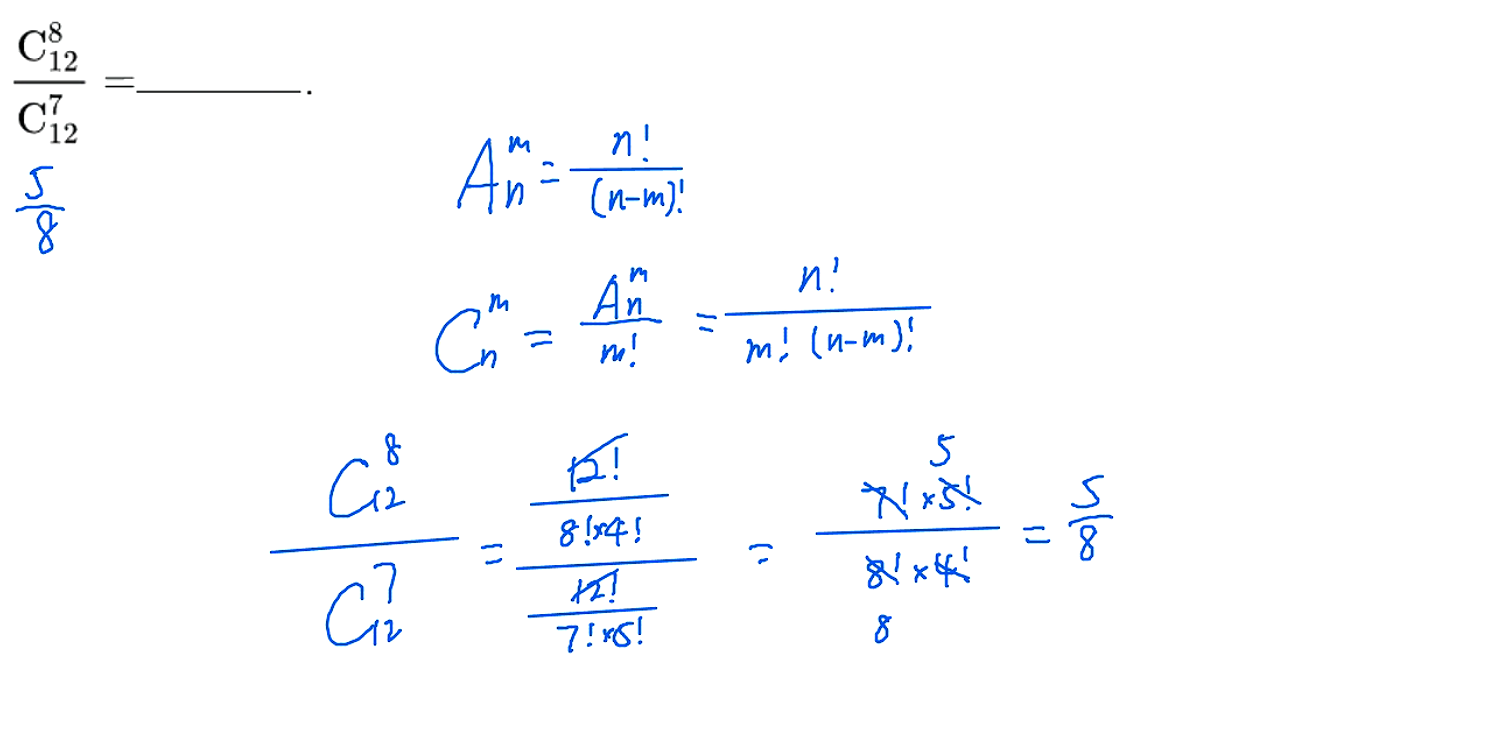 \frac{C_{12}^{8}}{C_{12}^{7}} = ________ .
\frac{5}{8}
A_n^m = \frac{n!}{(n-m)!}
C_n^m = \frac{A_n^m}{m!} = \frac{n!}{m! (n-m)!}
\frac{C_{12}^{8}}{C_{12}^{7}} = \frac{\frac{12!}{8! × 4!}}{\frac{12!}{7! × 5!}} = \frac{\overset{5}{7! × 5!}}{\underset{8}{8! × 4!}} = \frac{5}{8}